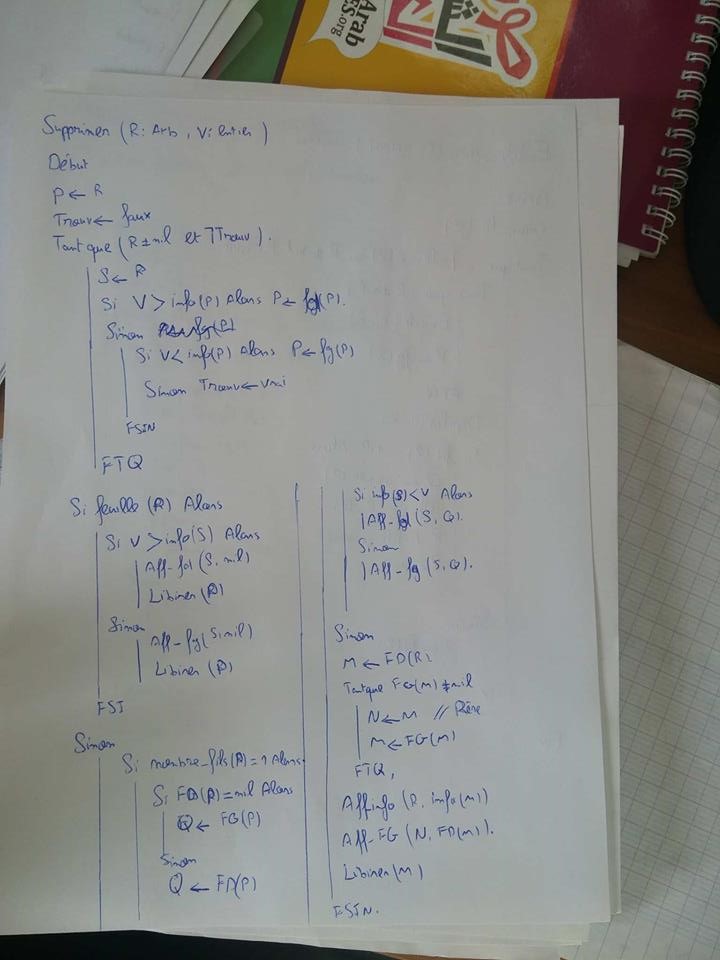 Arab
ES.org
Supprimer (R: Arb, V: Entier)
Début
P ← R
Trouv ← faux
Tant que (R ≠ nil et ¬Trouv).
S ← R
Si V > info(P) Alors P ← fd(P).
Sinon
Si V < info(P) Alors P ← fg(P)
Sinon Trouv ← vrai
FSIN
FTQ
Si feuille (P) Alors
Si V > info(S) Alors
Aff-fd (S, nil)
Libérer (P)
Sinon
Aff-fg (S, nil)
Libérer (P)
FSI
Sinon
Si nombre-fils (P) = 1 Alors
Si FD(P) = nil Alors
Q ← FG(P)
Sinon
Q ← FD(P)
Si info(S) < V Alors
Aff-fd (S, Q).
Sinon
Aff-fg (S, Q).
Sinon
M ← FD(R).
Tantque FG(M) ≠ nil
N ← M // Père
M ← FG(M)
FTQ,
Affinfo (R, info(M))
Aff-FG (N, FD(M)).
Libérer (M)
FSIN.